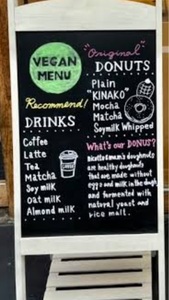 VEGAN
MENU
Recommend!
DRINKS
Coffee
Latte
Tea
Matcha
Soy milk
Oat milk
Almond milk
"Original"
DONUTS
Plain
"KINAKO"
Mocha
Matcha
Soymilk Whipped
What's our DONUS?
doughnuts
are healthy doughnuts
that are made without
eggs and milk in the dough
and fermented with
natural yeast and
rice malt.